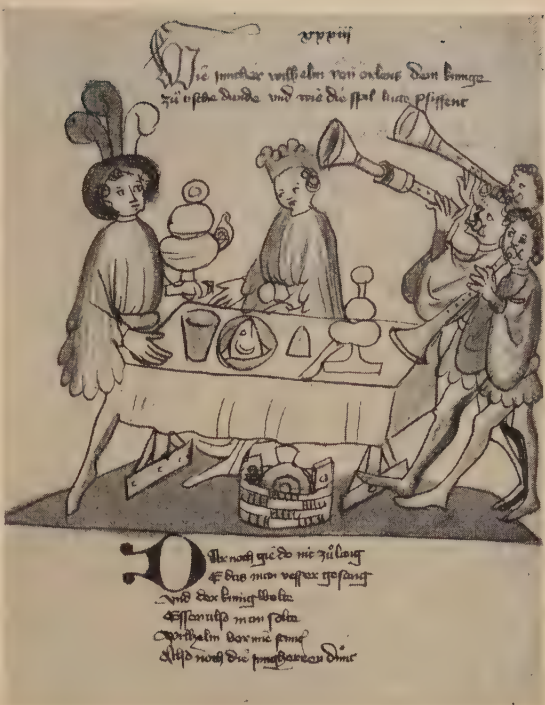 xxxiii
Wie juncher wilhelm von orlens dem kunge
zů tische diende vnd wie die spil lute pfiffent
Dar noch gie do nit zů lang
E das man vesper gesang
Vnd der kunig wolte
Essen also man solte
Wilhelm vor
Also noch die jungherren důnt